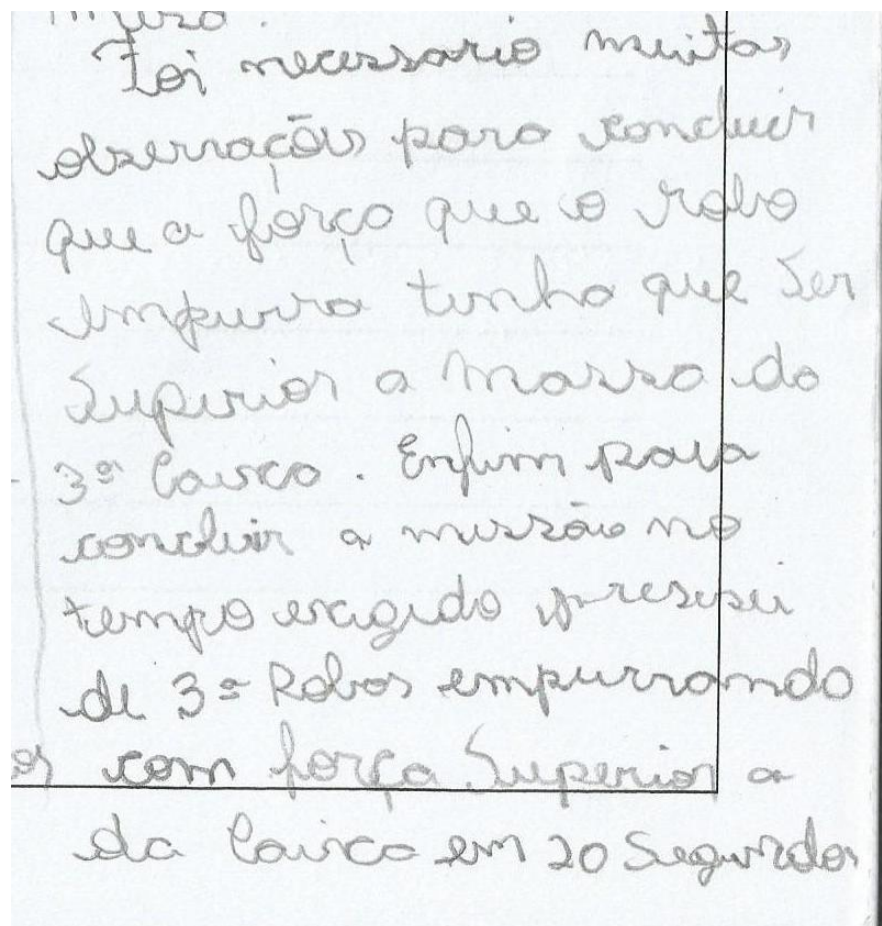 Foi necessario muitas
observações para concluir
que a força que o robo
empurra tinha que ser
Superior a massa da
3ª Caixa. Enfim para
concluir a missão no
tempo exigido presisei
de 3ª Robos empurrando
com força Superior a
da Caixa em 20 Segundos